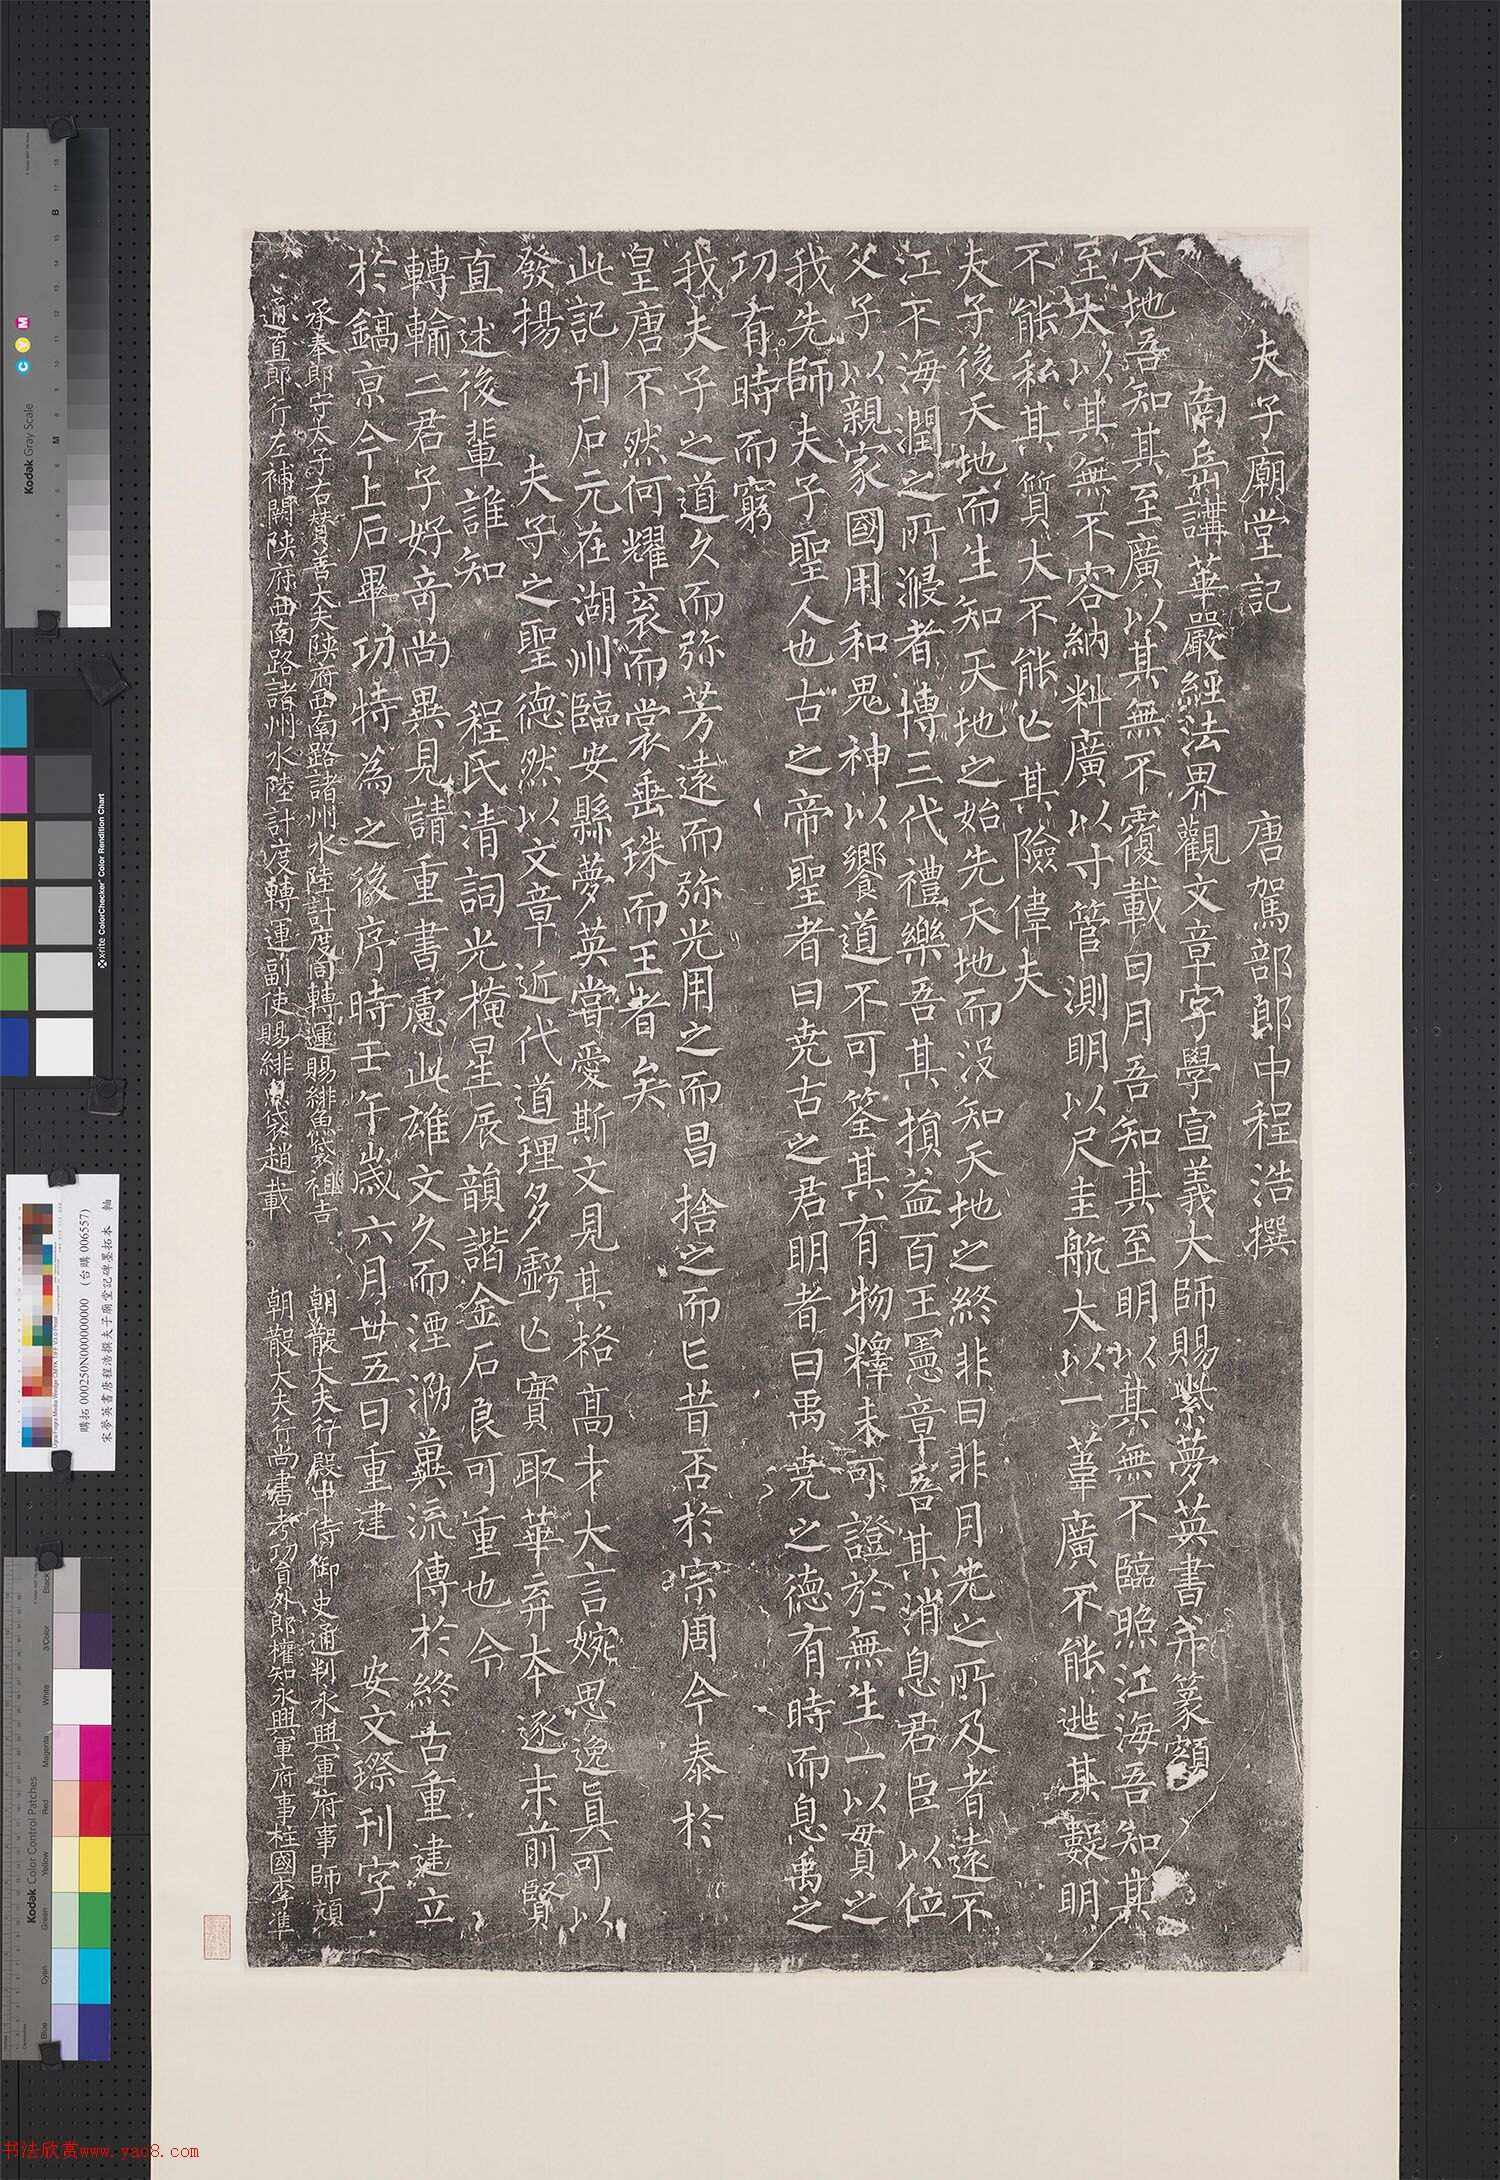 夫子廟堂記　唐駕部郎中程浩撰
南岳講華嚴經法界觀文章字學宣義大師賜紫夢英書并篆額
天地吾知其至廣以其無不覆載日月吾知其至明以其無不臨照江海吾知其
至大以其無不容納料廣以寸管測明以尺圭航大以一葦廣不能逃其數明
不能私其質大不能亡其險偉夫
夫子後天地而生知天地之始先天地而沒知天地之終非日非月光之所及者遠不
江不海潤之所浸者博三代禮樂吾其損益百王憲章吾其消息君臣以位
父子以親家國用和鬼神以饗道不可筌其有物釋未可證於無生一以貫之
我先師夫子聖人也古之帝聖者曰堯古之君明者曰禹堯之德有時而息禹之
功有時而窮
我夫子之道久而弥芳遠而弥光用之而昌捨之而亡昔否於宗周今泰於
皇唐不然何耀衮而裳垂珠而王者矣
此記刊石元在湖州臨安縣夢英嘗愛斯文見其格高才大言婉思逸真可以
發揚　夫子之聖德然以文章近代道理多虧亡實取華弃本逐末前賢
直述後輩誰知　程氏清詞光掩星辰韻諧金石良可重也令
轉輸二君子好奇尚異見請重書慮此雄文久而湮泐冀流傳於終古重建立
於鎬京今上石畢功特為之後序時壬午歲六月廿五日重建　安文璨刊字
承奉郎守太子右贊善大夫陝府西南路諸州水陸計度同轉運賜緋魚袋祖吉　朝散大夫行殿中侍御史通判永興軍府事師頏
通直郎行左補闕陝府西南路諸州水陸計度轉運副使賜緋魚袋趙載　朝散大夫行尚書考功員外郎權知永興軍府事柱國李準
Kodak Gray Scale
C Y M
x-rite ColorChecker Color Rendition Chart
購拓 000250N000000000 （台購 006557）
宋夢英書唐程浩撰夫子廟堂記碑墨拓本 軸
Kodak Color Control Patches
Blue Cyan Green Yellow Red Magenta White 3/Color Black
书法欣赏www.yac8.com